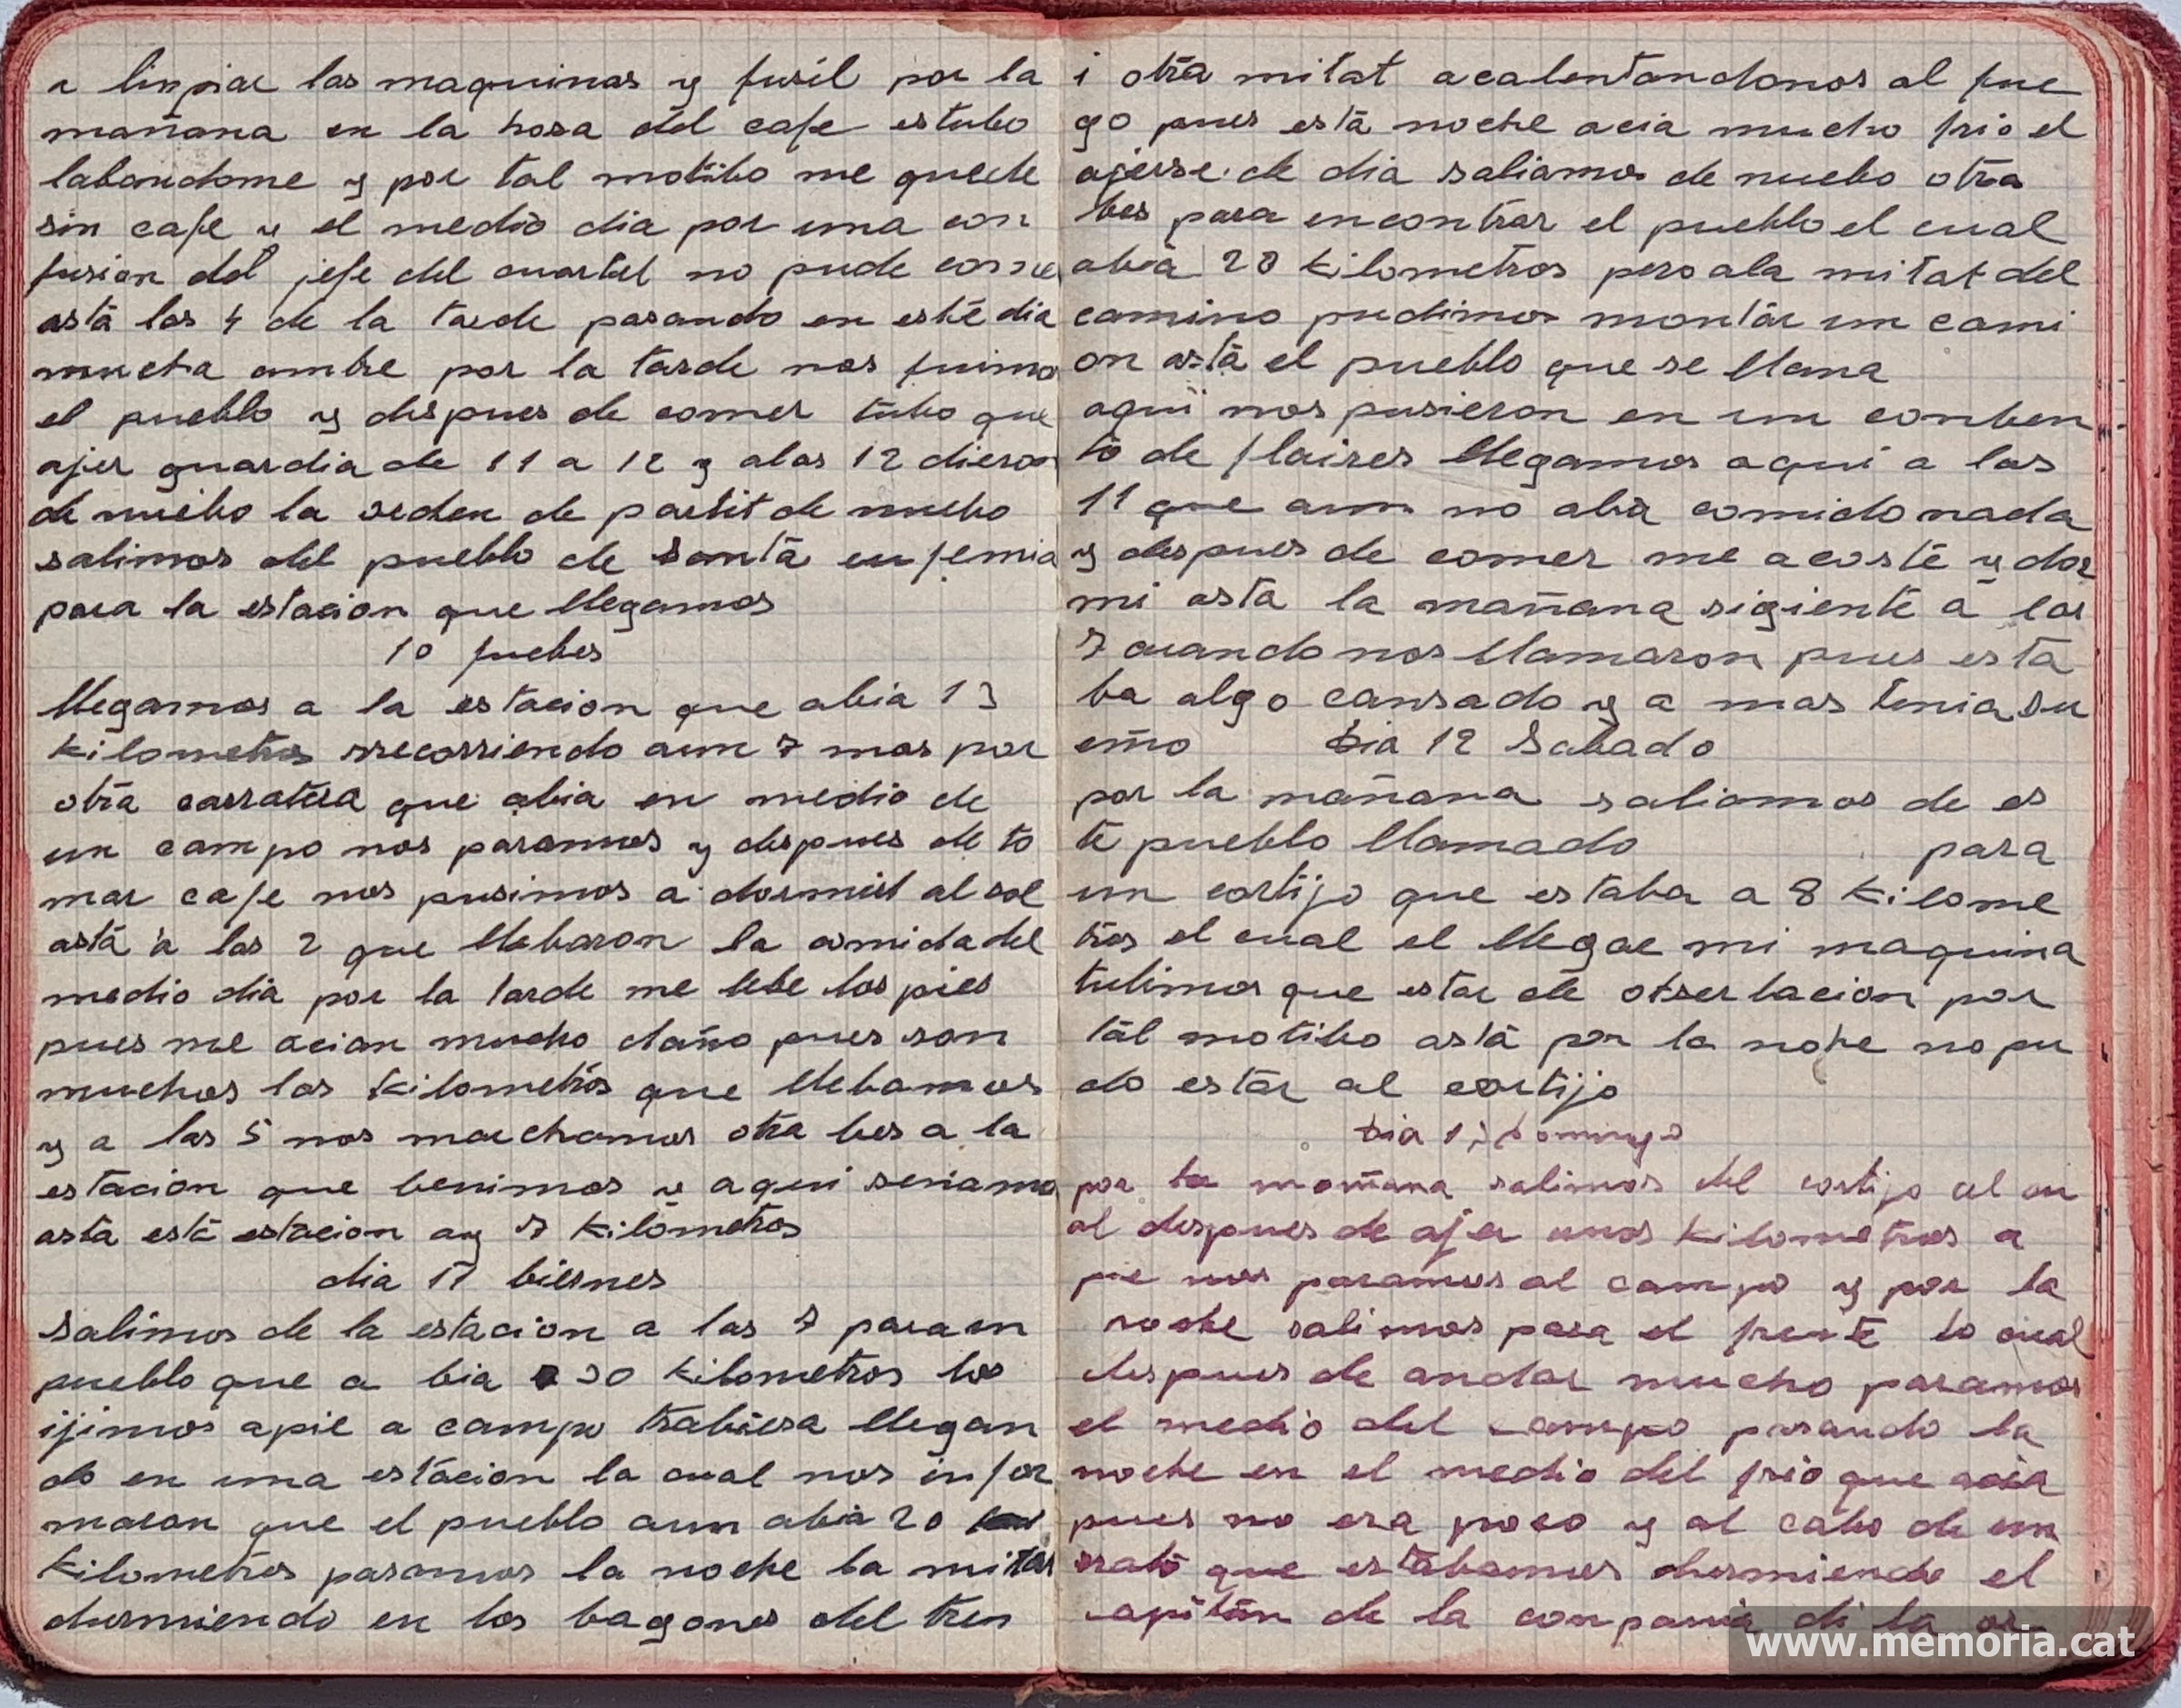 a linpiar las maquinas y fusil por la
mañana en la hora del cafe estubo
labandome y por tal motibo me quede
sin cafe y el medio dia por una con
fusion del jefe del cuartel no pude comer
asta las 4 de la tarde pasando en este dia
mucha ambre por la tarde nos fuimo
el pueblo y despues de comer tubo que
ajer guardia de 11 a 12 y a las 12 dieron
de nuebo la orden de partit de nuebo
salimos del pueblo de Santa eufemia
para la estacion que llegamos
10 juebes
llegamos a la estacion que abia 13
kilometros rrecorriendo aun 7 mas por
otra carratera que abia en medio de
un campo nos paramos y despues de to
mar cafe nos pusimos a dormid al sol
asta a las 2 que llebaron la comida del
medio dia por la tarde me lebe los pies
pues me acian mucho daño pues son
muchos los kilometros que llebamos
y a las 5 nos marchamos otra bes a la
estacion que benimos y aqui seriamo
asta esta estacion ay 7 kilometros
dia 11 biernes
salimos de la estacion a las 7 para un
pueblo que a bia 30 kilometros los
ijimos apie a campo trabiesa llegan
do en una estacion la cual nos infor
maron que el pueblo aun abia 20
kilometros pasamos la noche la mitat
durmiendo en los bagones del tren
i otra mitat acalentandonos al fue
go pues esta noche acia mucho frio el
ajerse de dia saliamos de nuebo otra
bes para encontrar el pueblo el cual
abia 20 kilometros pero ala mitat del
camino pudimos montar un cami
on asta el pueblo que se llama
aqui nos pusieron en un comben
to de flaires llegamos aqui a las
11 que aun no abia comido nada
y despues de comer me acoste y dor
mi asta la mañana sigiente a las
7 cuando nos llamaron pues esta
ba algo cansado y a mas tenia su
eño Dia 12 Sabado
por la mañana saliamos de es
te pueblo llamado para
un cortijo que estaba a 8 kilome
tros el cual el llegar mi maquina
tubimos que estar de otserbacion por
tal motibo asta por la noche no pu
do estar al cortijo
Dia 13 Domingo
por la mañana salimos del cortijo al cu
al despues de ajer unos kilometros a
pie nos paramos al campo y por la
noche salimos para el frente lo cual
despues de andar mucho paramos
el medio del campo pasando la
noche en el medio del frio que acia
pues no era poco y al cabo de un
rrato que estabamos durmiendo el
capitan de la conpania di la or
www.memoria.cat